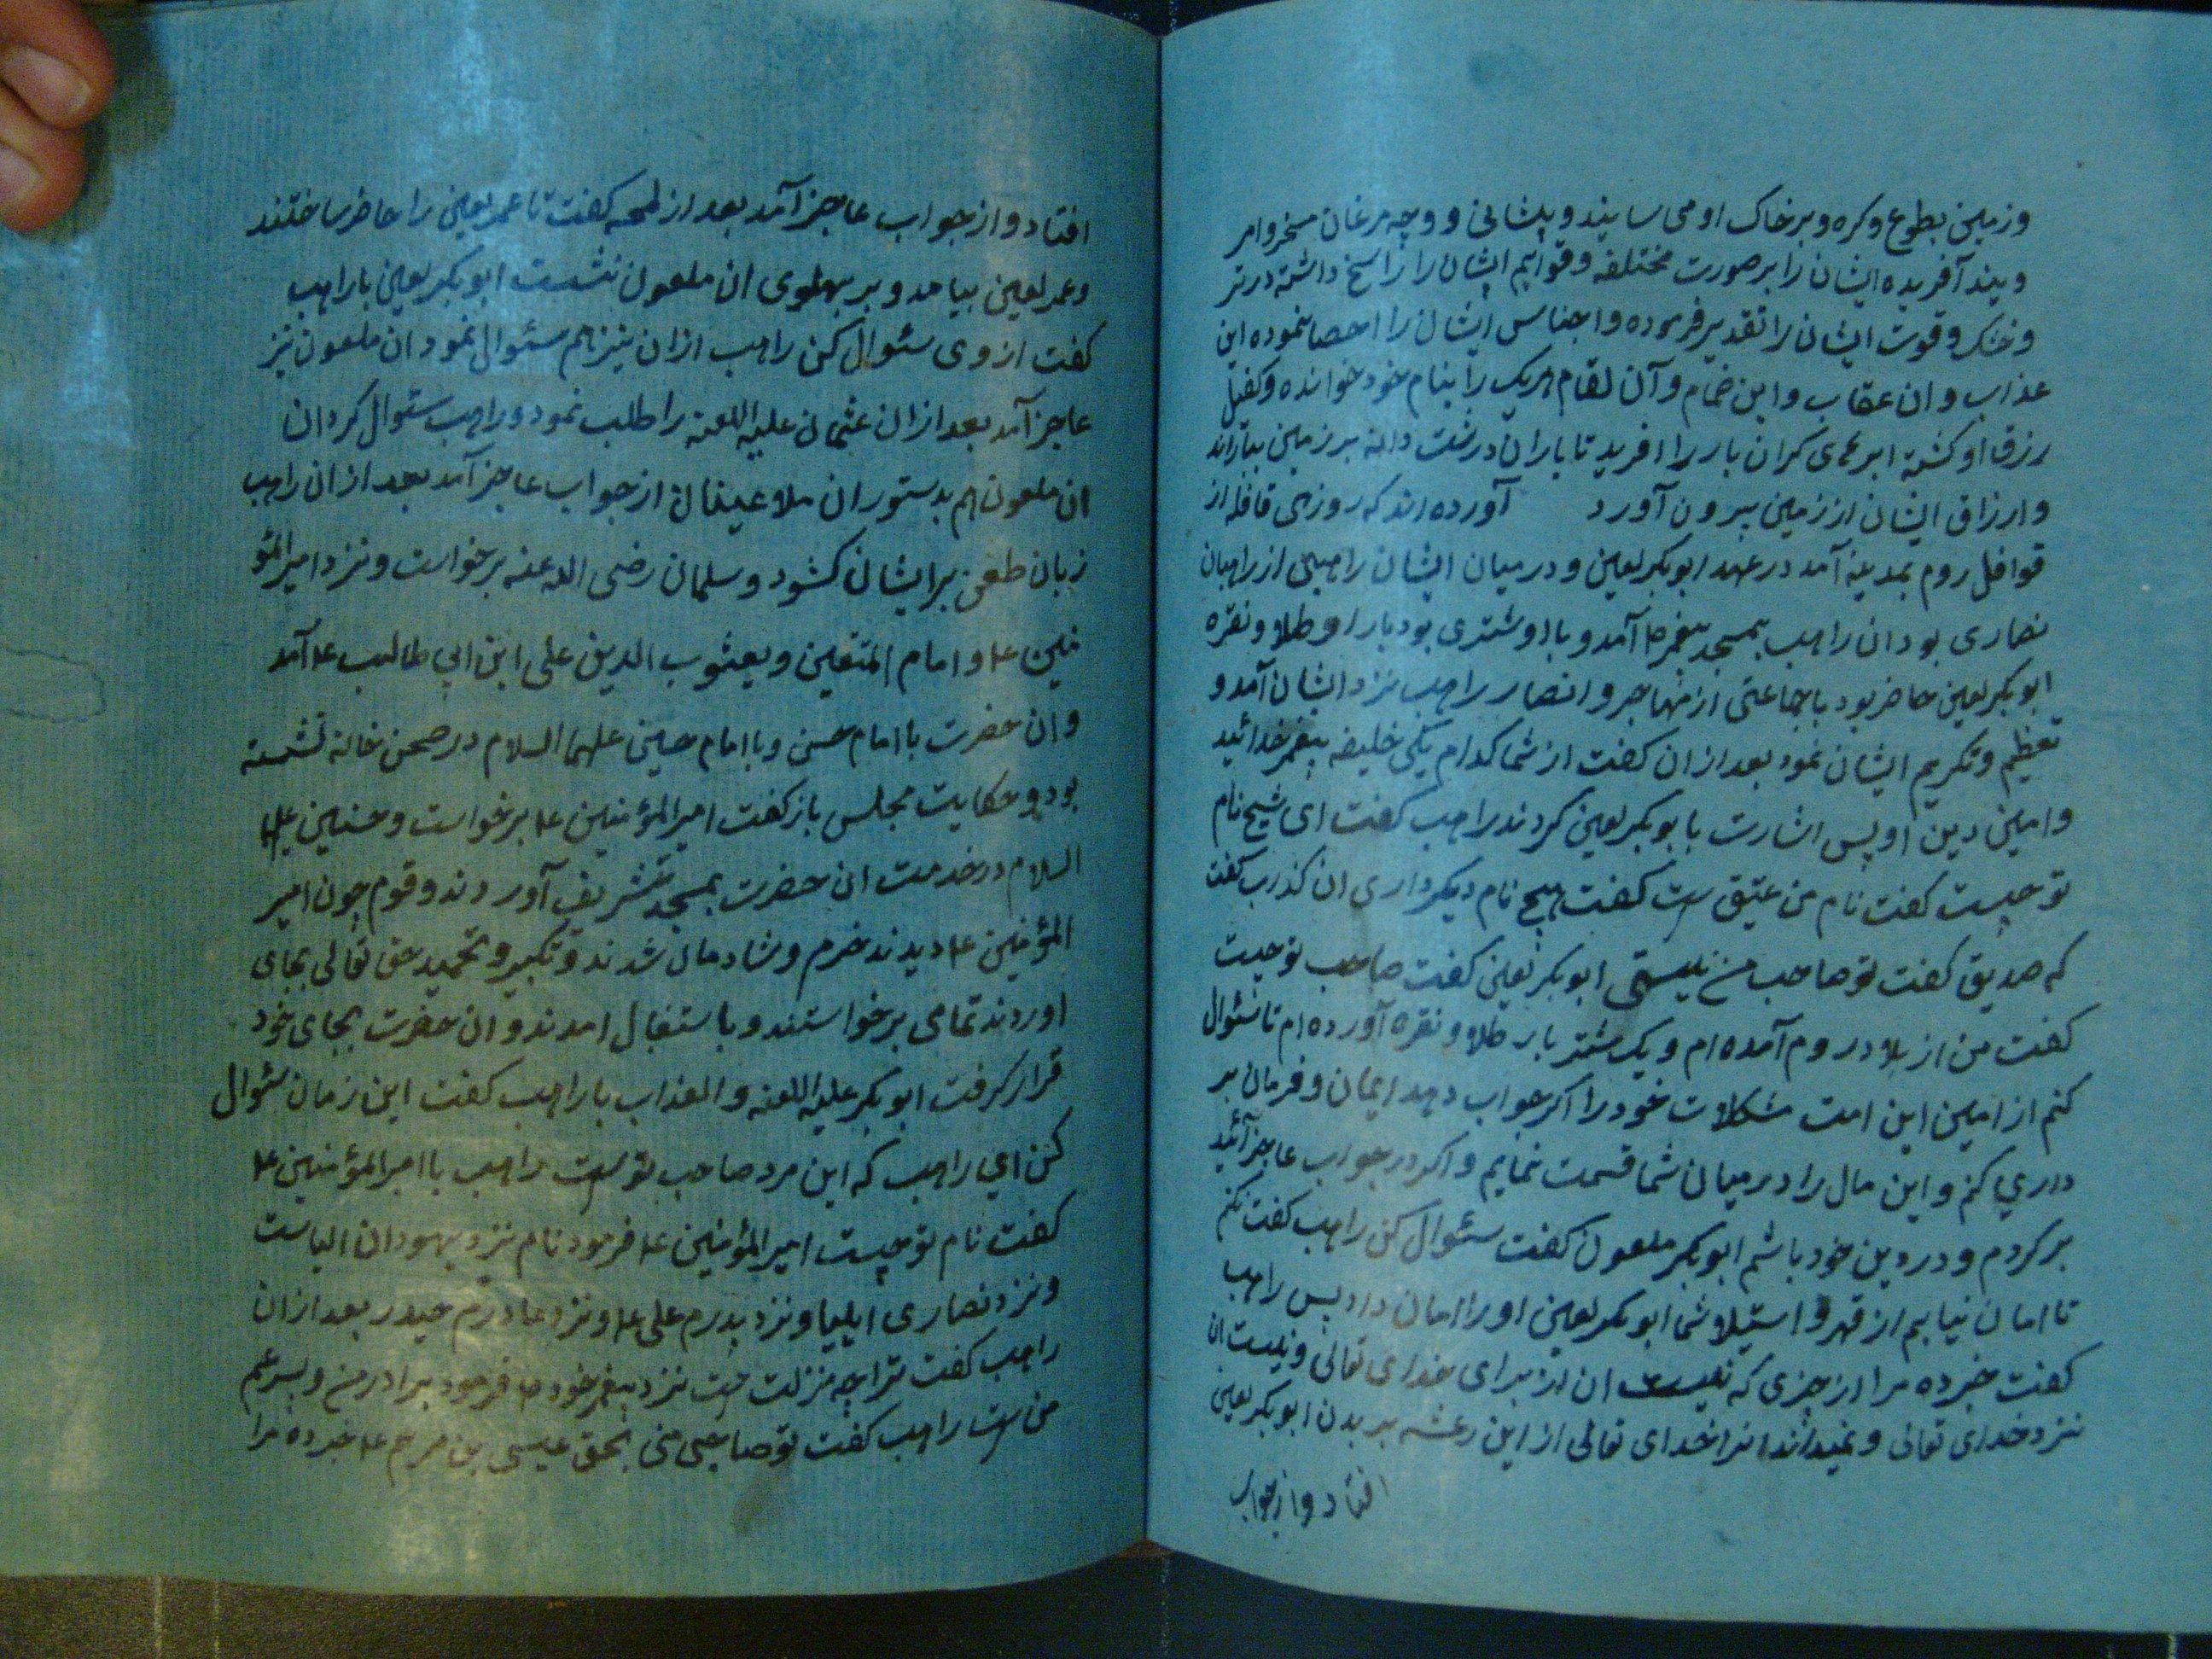 وزمین بطوع وکره وبر خاک او می سایند وپیشانی و وجه مرغان مسخر وامر
ویند آفریده ایشان را بر صورت مختلفه وقوایم ایشان را راسخ داشته در تر
وخشک وقوت ایشان را تقدیر فرموده واجناس ایشان را احصا نموده این
عذاب وان عقاب واین ضمام وآن لقام هریک را بنام خود خوانده وکفیل
رزق او کشته ابرهای کران بار را افرید تا باران درشت دانه بر زمین بباراند
وارزاق ایشان از زمین بیرون آورد آورده اند که روزی قافله از
قوافل روم بمدینه آمد در عهد ابوبکر لعین ودر میان ایشان راهبی از راهبان
نصاری بود ان راهب بمسجد پیغمبر ص آمد وبا او شتری بود بار او طلا ونقره
ابوبکر لعین حاضر بود با جماعتی از مهاجر وانصار راهب نزد ایشان آمد و
تعظیم وتکریم ایشان نمود بعد ازان کفت از شما کدام یکی خلیفه پیغمبر خدائید
وامین دین او پس اشارت بابوبکر لعین کردند راهب کفت ای شیخ نام
تو چیست کفت نام من عتیق ست کفت هیچ نام دیکر داری ان کذرب کفت
که صدیق کفت تو صاحب من نیستی ابوبکر لعین کفت صاحب تو چیست
کفت من از بلاد روم آمده ام ویک شتر بار طلا ونقره آورده ام تا سئوال
کنم از امین این امت مشکلات خود را اکر جواب دهد ایمان وفرمان بر
داری کنم واین مال را در میان شما قسمت نمایم واکر در جواب عاجز آئید
بر کردم ودر دین خود باشم ابوبکر ملعون کفت سئوال کن راهب کفت نکنم
تا امان نیابم از قهر واستیلا شما ابوبکر لعین او را امان داد پس راهب
کفت خبر ده مرا از چیزی که نیست ان از برای خدای تعالی ونیست ان
نزد خدای تعالی ونمیداند انرا خدای تعالی از این رعشه بر بدن ابوبکر لعین
افتاد واز جواب
افتاد واز جواب عاجز آمد بعد از لمحه کفت تا عمر لعین را حاضر ساختند
وعمر لعین بیامد وبر پهلوی ان ملعون نشست ابوبکر لعین با راهب
کفت از وی سئوال کن راهب ازان نیز هم سئوال نمود ان ملعون نیز
عاجز آمد بعد ازان عثمان علیه اللعنه را طلب نمود وراهب سئوال کرد ان
ان ملعون هم بدستور ان ملاعینان از جواب عاجز آمد بعد ازان راهب
زبان طعن بر ایشان کشود وسلمان رضی الله عنه برخواست ونزد امیرالمؤ
منین ع وامام المتقین ویعثوب الدین علی ابن ابی طالب ع آمد
وان حضرت با امام حسن وبا امام حسین علیهما السلام در صحن خانه نشسته
بود وحکایت مجلس باز کفت امیرالمؤمنین ع برخواست وحسنین علیهما
السلام در خدمت ان حضرت بمسجد تشریف آوردند وقوم چون امیر
المؤمنین ع دیدند خرم وشادمان شدند وتکبیر وتحمید حق تعالی بجای
اوردند تمامی برخواستند وباستقبال امدند وان حضرت بجای خود
قرار کرفت ابوبکر علیه اللعنه والعذاب با راهب کفت این زمان سئوال
کن ای راهب که این مرد صاحب توست راهب با امیرالمؤمنین ع
کفت نام تو چیست امیرالمؤمنین ع فرمود نام نزد یهودان الیاست
ونزد نصاری ایلیا ونزد پدرم علی ع ونزد مادرم حیدر بعد ازان
راهب کفت ترا چه منزلت ست نزد پیغمبر خود ص فرمود برادر من وپسر عم
من ست راهب کفت تو صاحب منی بحق عیسی بن مریم ع خبر ده مرا